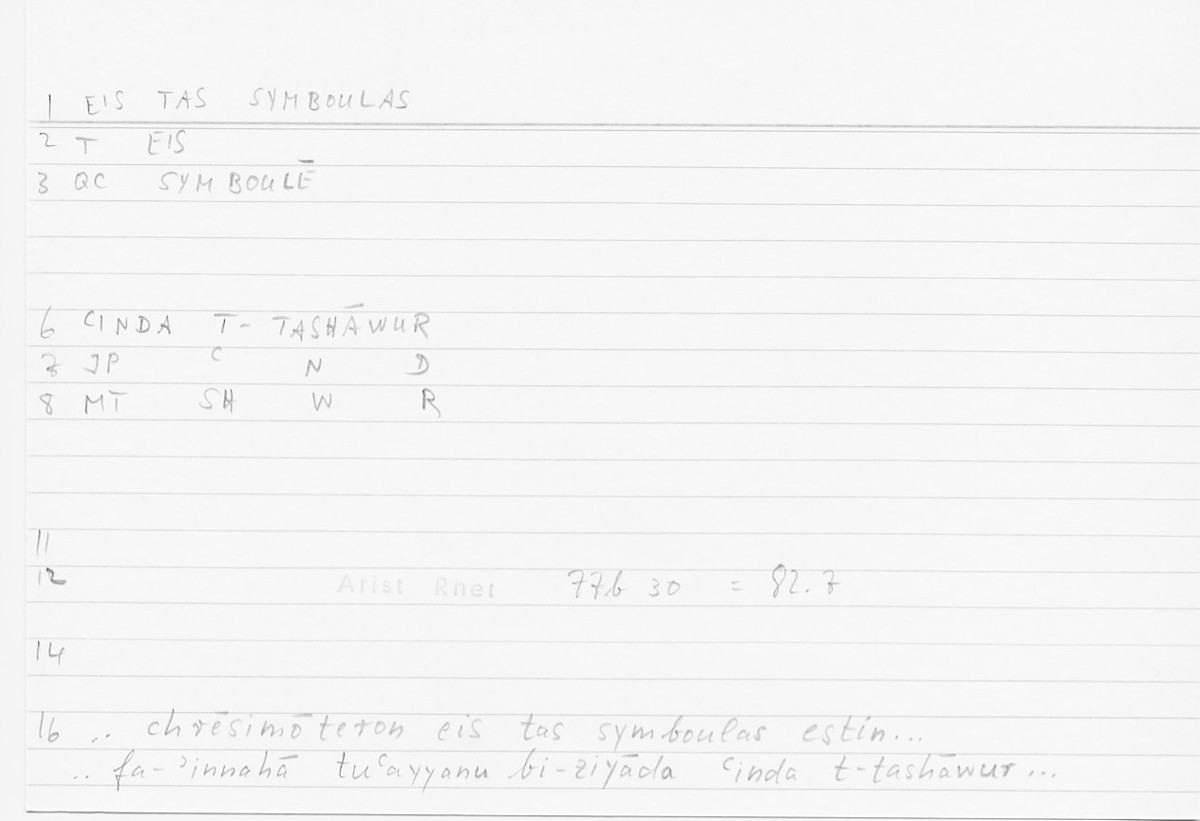 1 EIS TAS SYMBOULAS
2 T EIS
3 QC SYMBOULĒ
6 ʿINDA T-TASHĀWUR
7 JP ʿ N D
8 MT SH W R
11
12 Arist Rhet 77b 30 = 82.7
14
16 .. chrēsimōteron eis tas symboulas estin...
.. fa-ʾinnahā tuʿayyanu bi-ziyāda ʿinda t-tashāwur...